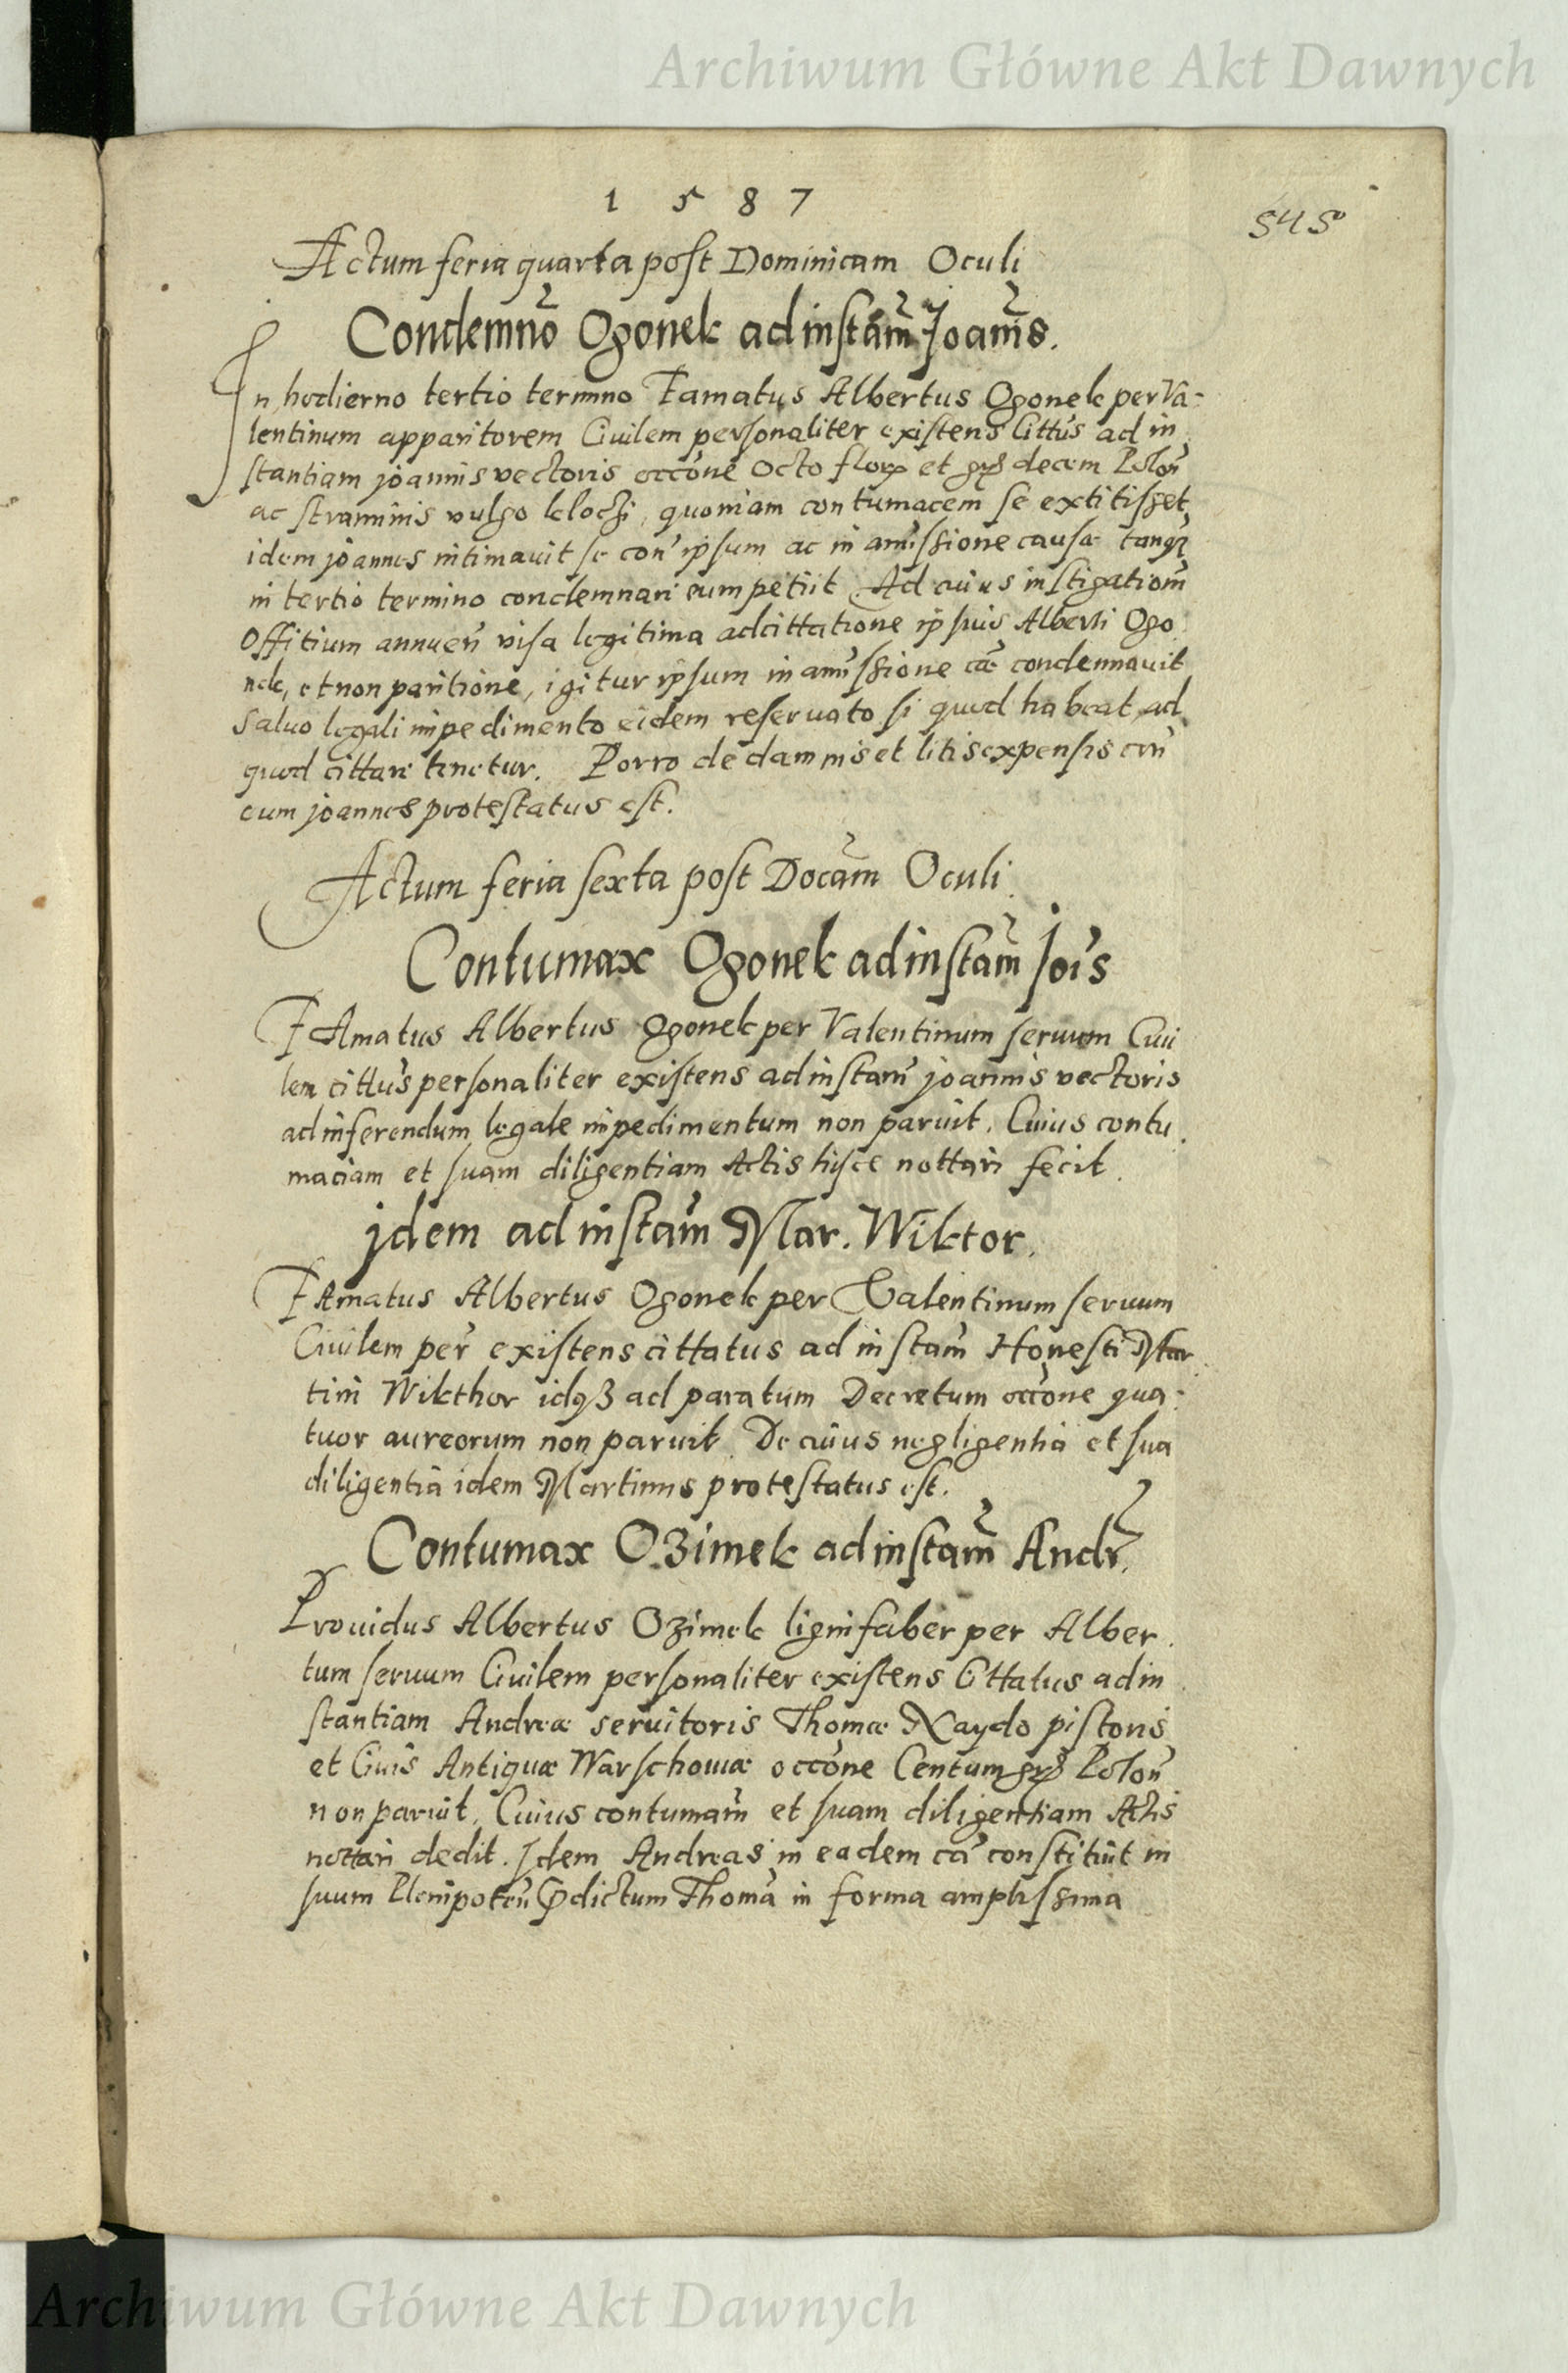 Archiwum Główne Akt Dawnych
1 5 8 7
545
Actum feria quarta post Dominicam Oculi
Condemnõ Ogonek ad instam̃ Joañis.
In hodierno tertio termino Famatus Albertus Ogonek per Va-
lentinum apparitorem Ciuilem personaliter existens Citt͠us ad in
stantiam joannis vectoris occõne octo flor et gr decem Polon̄
ac straminis vulgo kloczi, quoniam contumacem se extitisset
idem joannes intimauit se con̄ ipsum ac in amissione causæ tanq̄
in tertio termino condemnari eum petiit. Ad cuius instigatiom̄
Offitium annuen̄ visa legitima adcittatione ipsius Alberti Ogo
nek, et non paritione, igitur ipsum in amissione cæ condemnauit
Saluo legali impedimento eidem reseruato si quod habeat ad
quod cittari tenetur. Porro de damnis et litis expensis con̄
eum joannes protestatus est.
Actum feria sexta post Docam̃ Oculi
Contumax Ogonek ad instam̃ Jois
FAmatus Albertus Ogonek per Valentinum seruum Ciui
lem citt͠us personaliter existens ad instam̄ joannis vectoris
ad inferendum legale impedimentum non paruit. Cuius contu
maciam et suam diligentiam Actis hisce nottari fecit.
jdem ad instam̃ Mar. Wiktor.
FAmatus Albertus Ogonek per Valentinum seruum
Ciuilem per̄ existens cittatus ad instam̄ Honesti Mar
tini Wikthor idqʒ ad paratum Decretum occõne qua-
tuor aureorum non paruit. De cuius negligentia et sua
diligentia idem Martinus protestatus est.
Contumax Ozimek ad instam̃ Andr̃.
Prouidus Albertus Ozimek lignifaber per Alber
tum seruum Ciuilem personaliter existens Cittatus ad in
stantiam Andreæ seruitoris Thomæ Naydo pistoris
et Ciuis Antiquæ Warschouiæ occõne Centum gr Polon̄
non paruit. Cuius contumam̄ et suam diligentiam Actis
nottari dedit. Idem Andreas in eadem cā constituit in
suum Plenipoten̄ p̄dictum Thomā in forma amplissima
Archiwum Główne Akt Dawnych